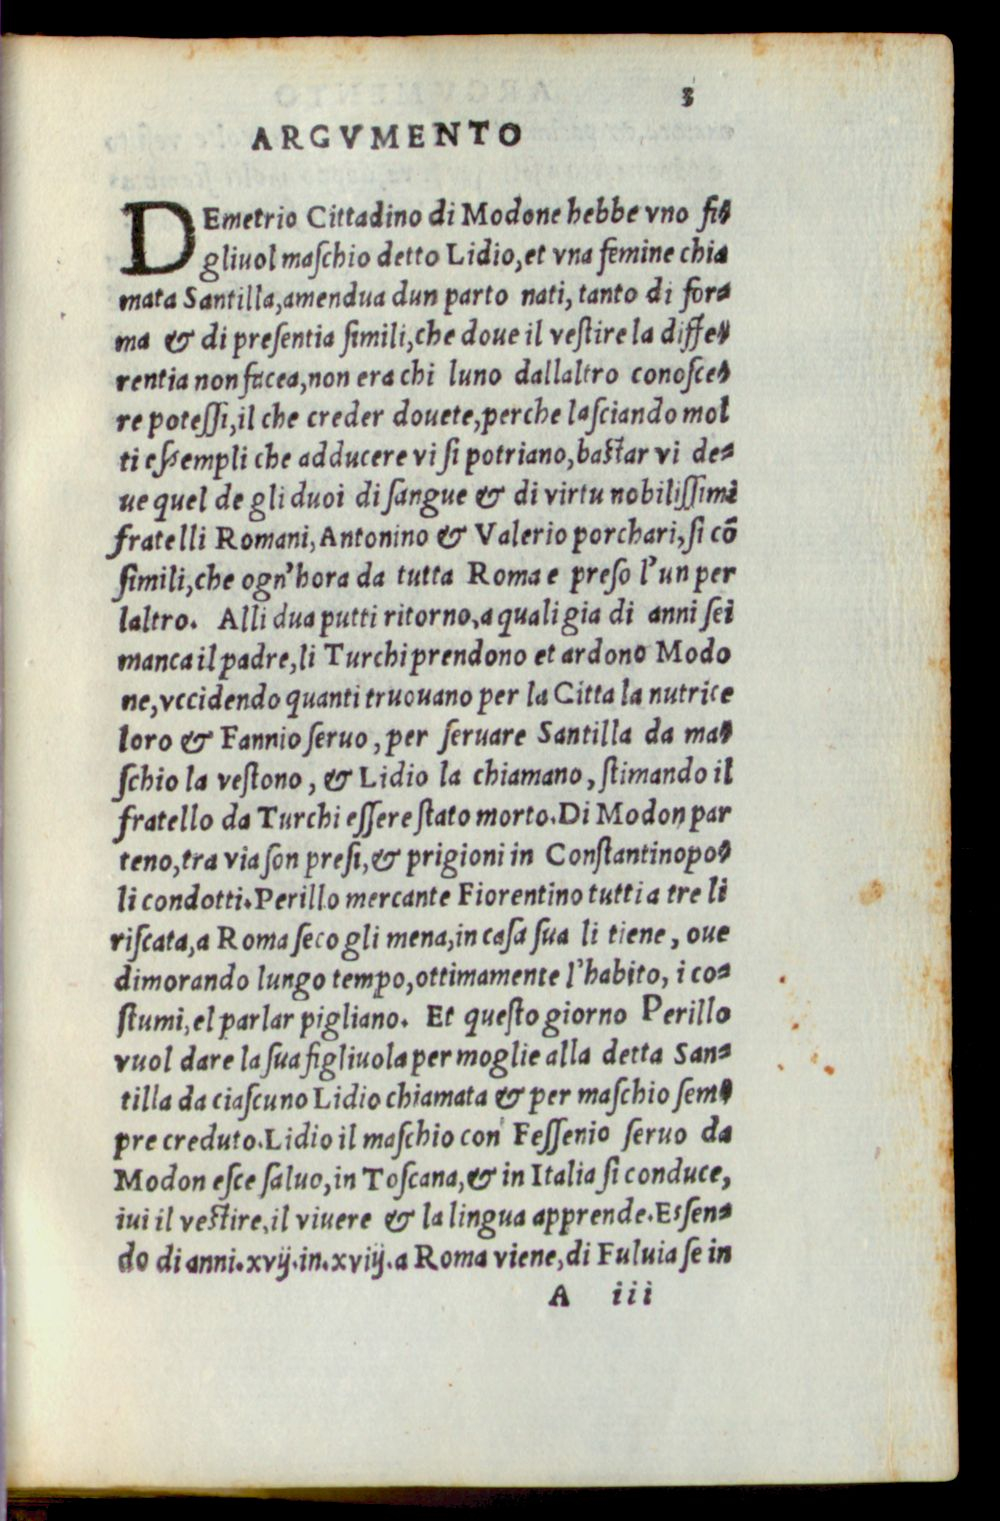 3
ARGVMENTO
DEmetrio Cittadino di Modone hebbe vno fi-
gliuol maſchio detto Lidio, et vna femine chia
mata Santilla, amendua dun parto nati, tanto di for-
ma & di preſentia ſimili, che doue il veſtire la diffe-
rentia non facea, non era chi luno dallaltro conoſce-
re poteſſi, il che creder douete, perche laſciando mol
ti eſsempli che adducere vi ſi potriano, baſtar vi de-
ue quel de gli duoi di ſangue & di virtu nobiliſſimi
fratelli Romani, Antonino & Valerio porchari, ſi cõ
ſimili, che ogn'hora da tutta Roma e preſo l'un per
laltro. Alli dua putti ritorno, a quali gia di anni ſei
manca il padre, li Turchi prendono et ardono Modo
ne, vccidendo quanti truouano per la Citta la nutrice
loro & Fannio ſeruo, per ſeruare Santilla da ma-
ſchio la veſtono, & Lidio la chiamano, ſtimando il
fratello da Turchi eſſere ſtato morto. Di Modon par
teno, tra via ſon preſi, & prigioni in Conſtantinopo-
li condotti. Perillo mercante Fiorentino tutti a tre li
riſcata, a Roma ſeco gli mena, in caſa ſua li tiene, oue
dimorando lungo tempo, ottimamente l'habito, i co-
ſtumi, el parlar pigliano. Et queſto giorno Perillo
vuol dare la ſua figliuola per moglie alla detta San-
tilla da ciaſcuno Lidio chiamata & per maſchio ſem-
pre creduto. Lidio il maſchio con Feſſenio ſeruo da
Modon eſce ſaluo, in Toſcana, & in Italia ſi conduce,
iui il veſtire, il viuere & la lingua apprende. Eſſen-
do di anni. xvij. in. xviij. a Roma viene, di Fuluia ſe in
A iii